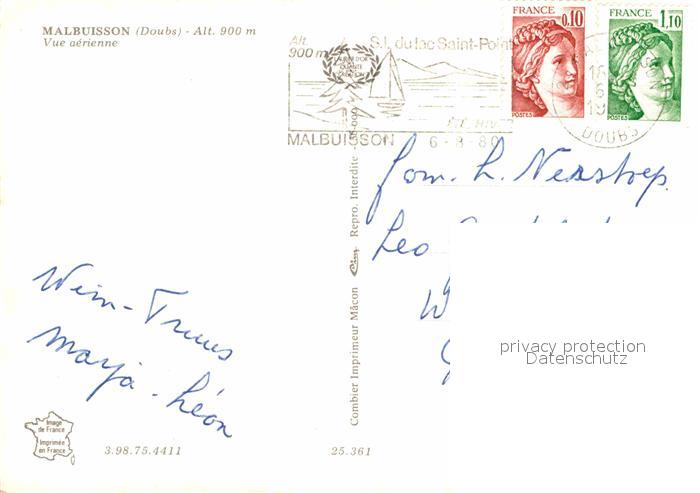 MALBUISSON (Doubs) - Alt. 900 m
Vue aérienne
Alt.
900 m
S.I. du lac Saint-Point
ÉTÉ. HIVER
MALBUISSON 6-8-80
FRANCE 0,10
POSTES
FRANCE 1,10
POSTES
DOUBS
Fam. L. Nerstrep.
Leo
Wim - Truus
Marja - Léon
Combier Imprimeur Mâcon Cim Repro. Interdite
Image
de France
Imprimée
en France
3.98.75.4411
25.361
privacy protection
Datenschutz